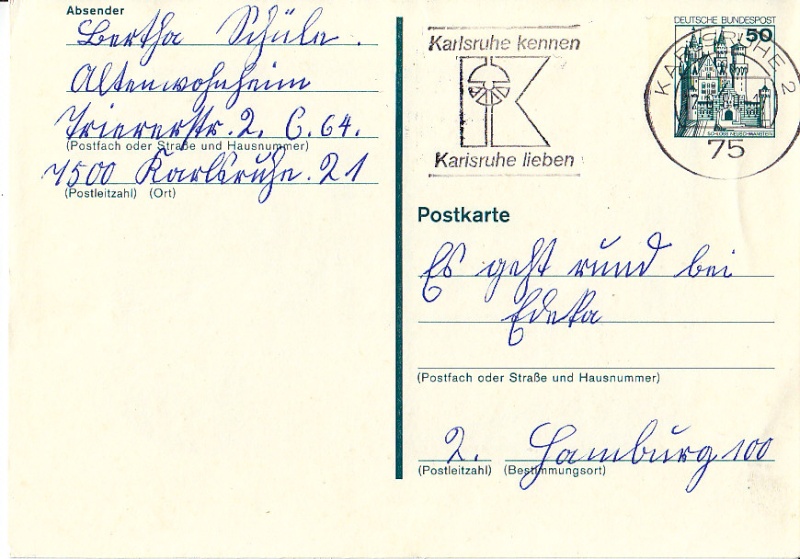 Absender
Bertha Schüle.
Altenwohnheim
Triererstr. 2. C. 64.
(Postfach oder Straße und Hausnummer)
7500 Karlsruhe. 21
(Postleitzahl) (Ort)
Karlsruhe kennen
K
Karlsruhe lieben
DEUTSCHE BUNDESPOST
50
SCHLOSS NEUSCHWANSTEIN
KARLSRUHE 2
75
Postkarte
Es geht rund bei
Edeka
(Postfach oder Straße und Hausnummer)
2. Hamburg 100
(Postleitzahl) (Bestimmungsort)